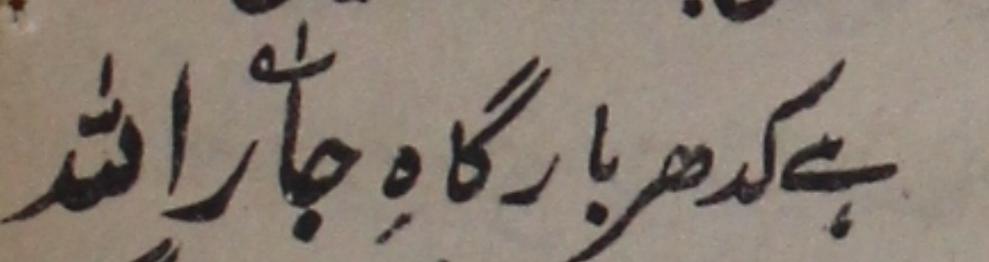 ہے کدھر بارگاہِ جارؔ اللہ